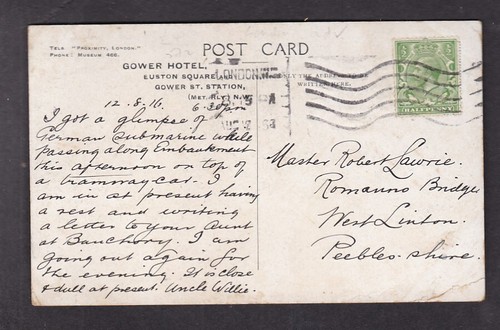 TELE. "PROXIMITY, LONDON."
PHONE: MUSEUM 466.
POST CARD
GOWER HOTEL,
EUSTON SQUARE
GOWER ST. STATION,
(MET. RLY) N.W.
LONDON. N.W.
ONLY THE ADDRESS TO BE
WRITTEN HERE.
HALFPENNY
12.8.16. 6.30pm
I got a glimpse of
German Submarine while
passing along Embankment
this afternoon on top of
a tramway car. I
am in at present having
a rest and writing
a letter to your Aunt
at Banchory. I am
going out again for
the evening. It is close
& dull at present. Uncle Willie.
Master Robert Lawrie.
Romanno Bridge
West Linton.
Peebles-shire.